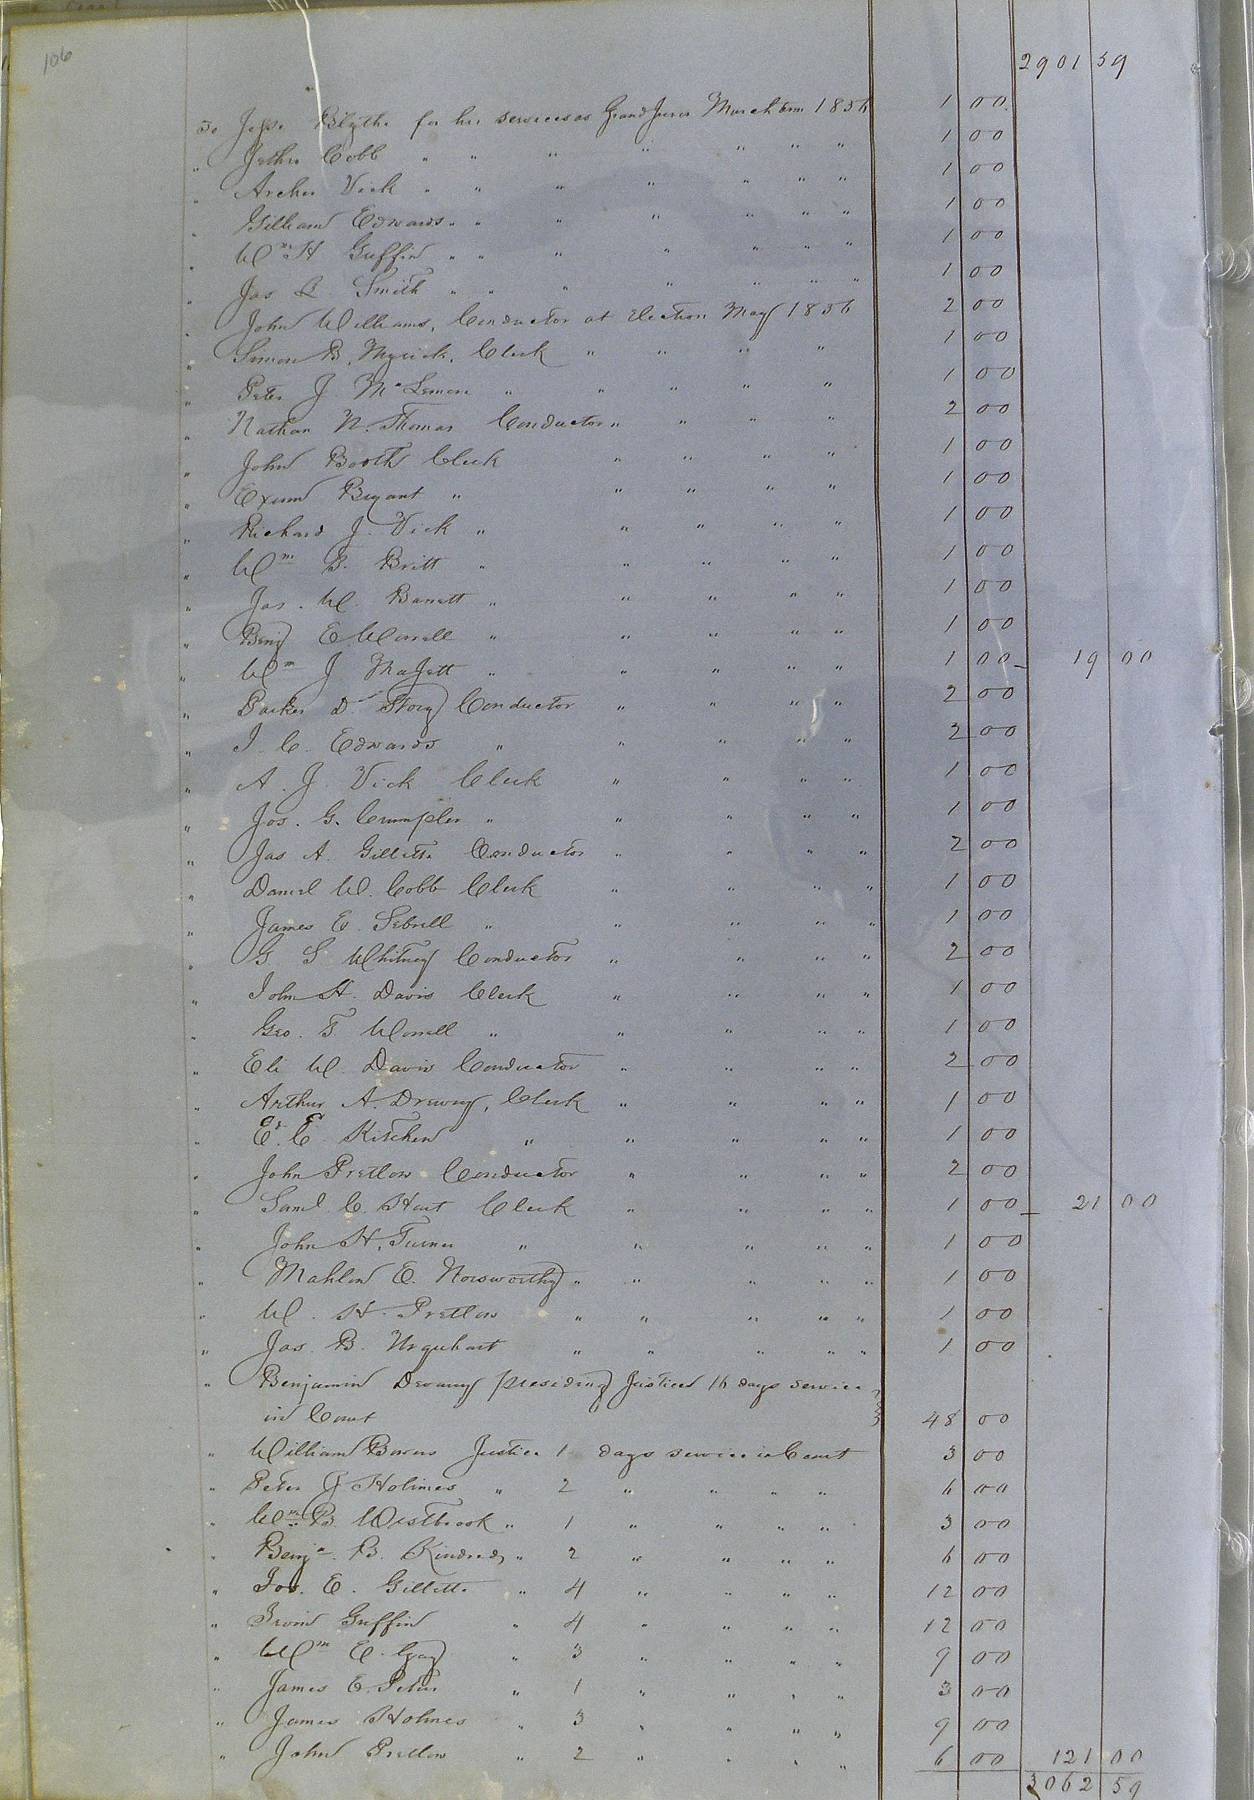 106
2901 59
To Jesse Blythe for his services as Grand Juror March term 1856 1 00
" Jethro Cobb " " " " " " " 1 00
" Archer Vick " " " " " " " 1 00
" Gilliam Edwards " " " " " " " 1 00
" Wm H Griffin " " " " " " " 1 00
" Jas Smith " " " " " " " 1 00
John Williams, Conductor at Election May 1856 2 00
" Simon B. Myrick, Clerk " " " " 1 00
" Peter J McLemore " " " " " 1 00
" Nathan N. Thomas Conductor " " " " 2 00
" John Booth Clerk " " " " 1 00
" Exum Bryant " " " " " 1 00
" Richard J. Vick " " " " " 1 00
" Wm Britt " " " " " 1 00
" Jas. W. Barrett " " " " " 1 00
" Benj E Worrell " " " " " 1 00
" Wm J Majett " " " " " 1 00 19 00
" Parker D. Story Conductor " " " " 2 00
" J. C. Edwards " " " " " 2 00
" A. J. Vick Clerk " " " " 1 00
" Jos. G. Crumpler " " " " " 1 00
" Jas A. Gillette Conductor " " " " 2 00
" Daniel W. Cobb Clerk " " " " 1 00
" James E. Sebrell " " " " " 1 00
" G S Whitney Conductor " " " " 2 00
" John H. Davis Clerk " " " " 1 00
" Geo. T Worrell " " " " " 1 00
" Eli W. Davis Conductor " " " " 2 00
" Arthur A. Drewry, Clerk " " " " 1 00
" Kitchen " " " " " 1 00
" John Pretlow Conductor " " " " 2 00
" Saml. C. Hart Clerk " " " " 1 00 21 00
" John H. Turner " " " " " 1 00
" Mahlon E. Norsworthy " " " " " 1 00
" W. H. Pretlow " " " " " 1 00
" Jas. B. Urquhart " " " " " 1 00
" Benjamin Devany presiding Justice 16 days service
in Court 48 00
" William Barns Justice 1 days service in Court 3 00
" Peter J Holmes " 2 " " " " 6 00
" Wm B. Westbrook " 1 " " " " 3 00
" Benja. B. Kindred " 2 " " " " 6 00
" Jos. E. Gillette " 4 " " " " 12 00
" Irvin Griffin " 4 " " " " 12 00
" Wm E. Gay " 3 " " " " 9 00
" James E. Peters " 1 " " " " 3 00
" James Holmes " 3 " " " " 9 00
" John Pretlow " 2 " " " " 6 00 121 00
3062 59